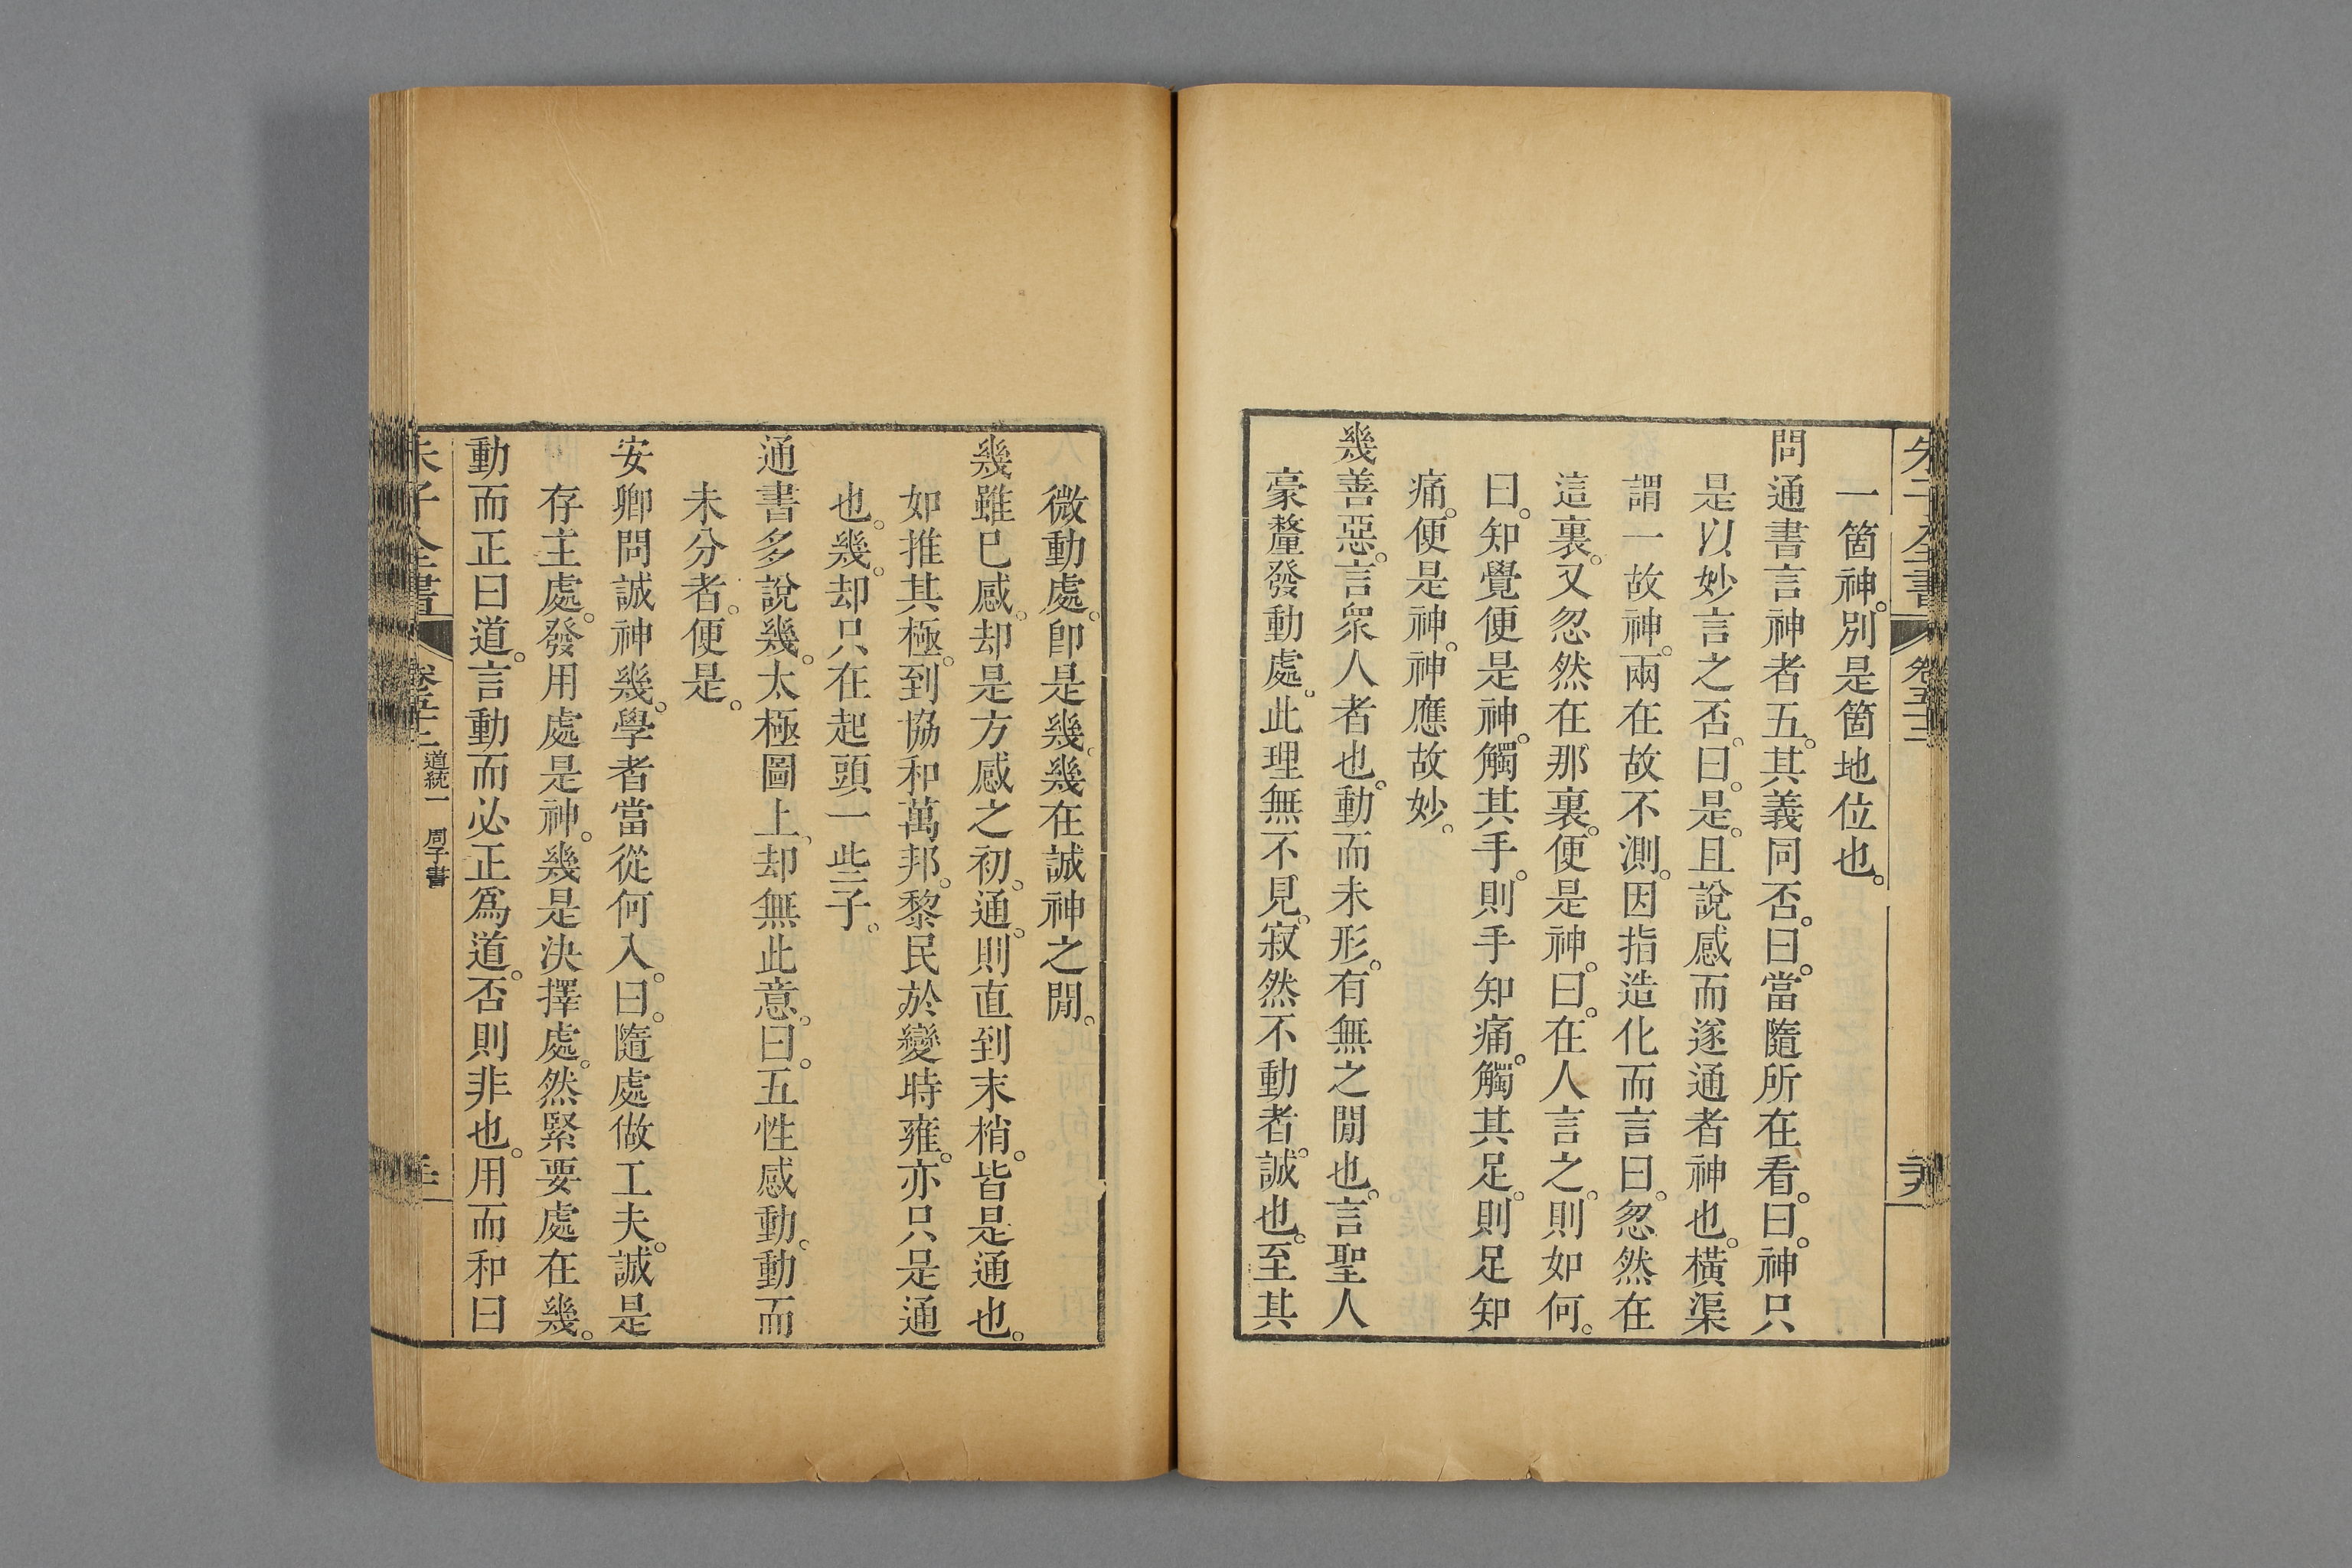 朱子全書
卷五十二
一箇神。別是箇地位也。
問通書言神者五。其義同否。曰。當隨所在看。曰。神只
是以妙言之否。曰。是。且說感而遂通者神也。橫渠
謂一故神。兩在故不測。因指造化而言曰。忽然在
這裏。又忽然在那裏。便是神。曰。在人言之。則如何。
曰。知覺便是神。觸其手。則手知痛。觸其足。則足知
痛。便是神。神應故妙。
幾善惡。言衆人者也。動而未形。有無之閒也。言聖人
豪釐發動處。此理無不見。寂然不動者。誠也。至其
微動處。卽是幾。幾在誠神之閒。
幾雖已感。却是方感之初。通。則直到末梢。皆是通也。
如推其極。到協和萬邦。黎民於變時雍。亦只是通
也。幾。却只在起頭一些子。
通書多說幾。太極圖上。却無此意。曰。五性感動。動而
未分者。便是。
安卿問誠神幾。學者當從何入。曰。隨處做工夫。誠是
存主處。發用處是神。幾是決擇處。然緊要處在幾。
動而正曰道。言動而必正爲道。否則非也。用而和曰
朱子全書
道統一 周子書